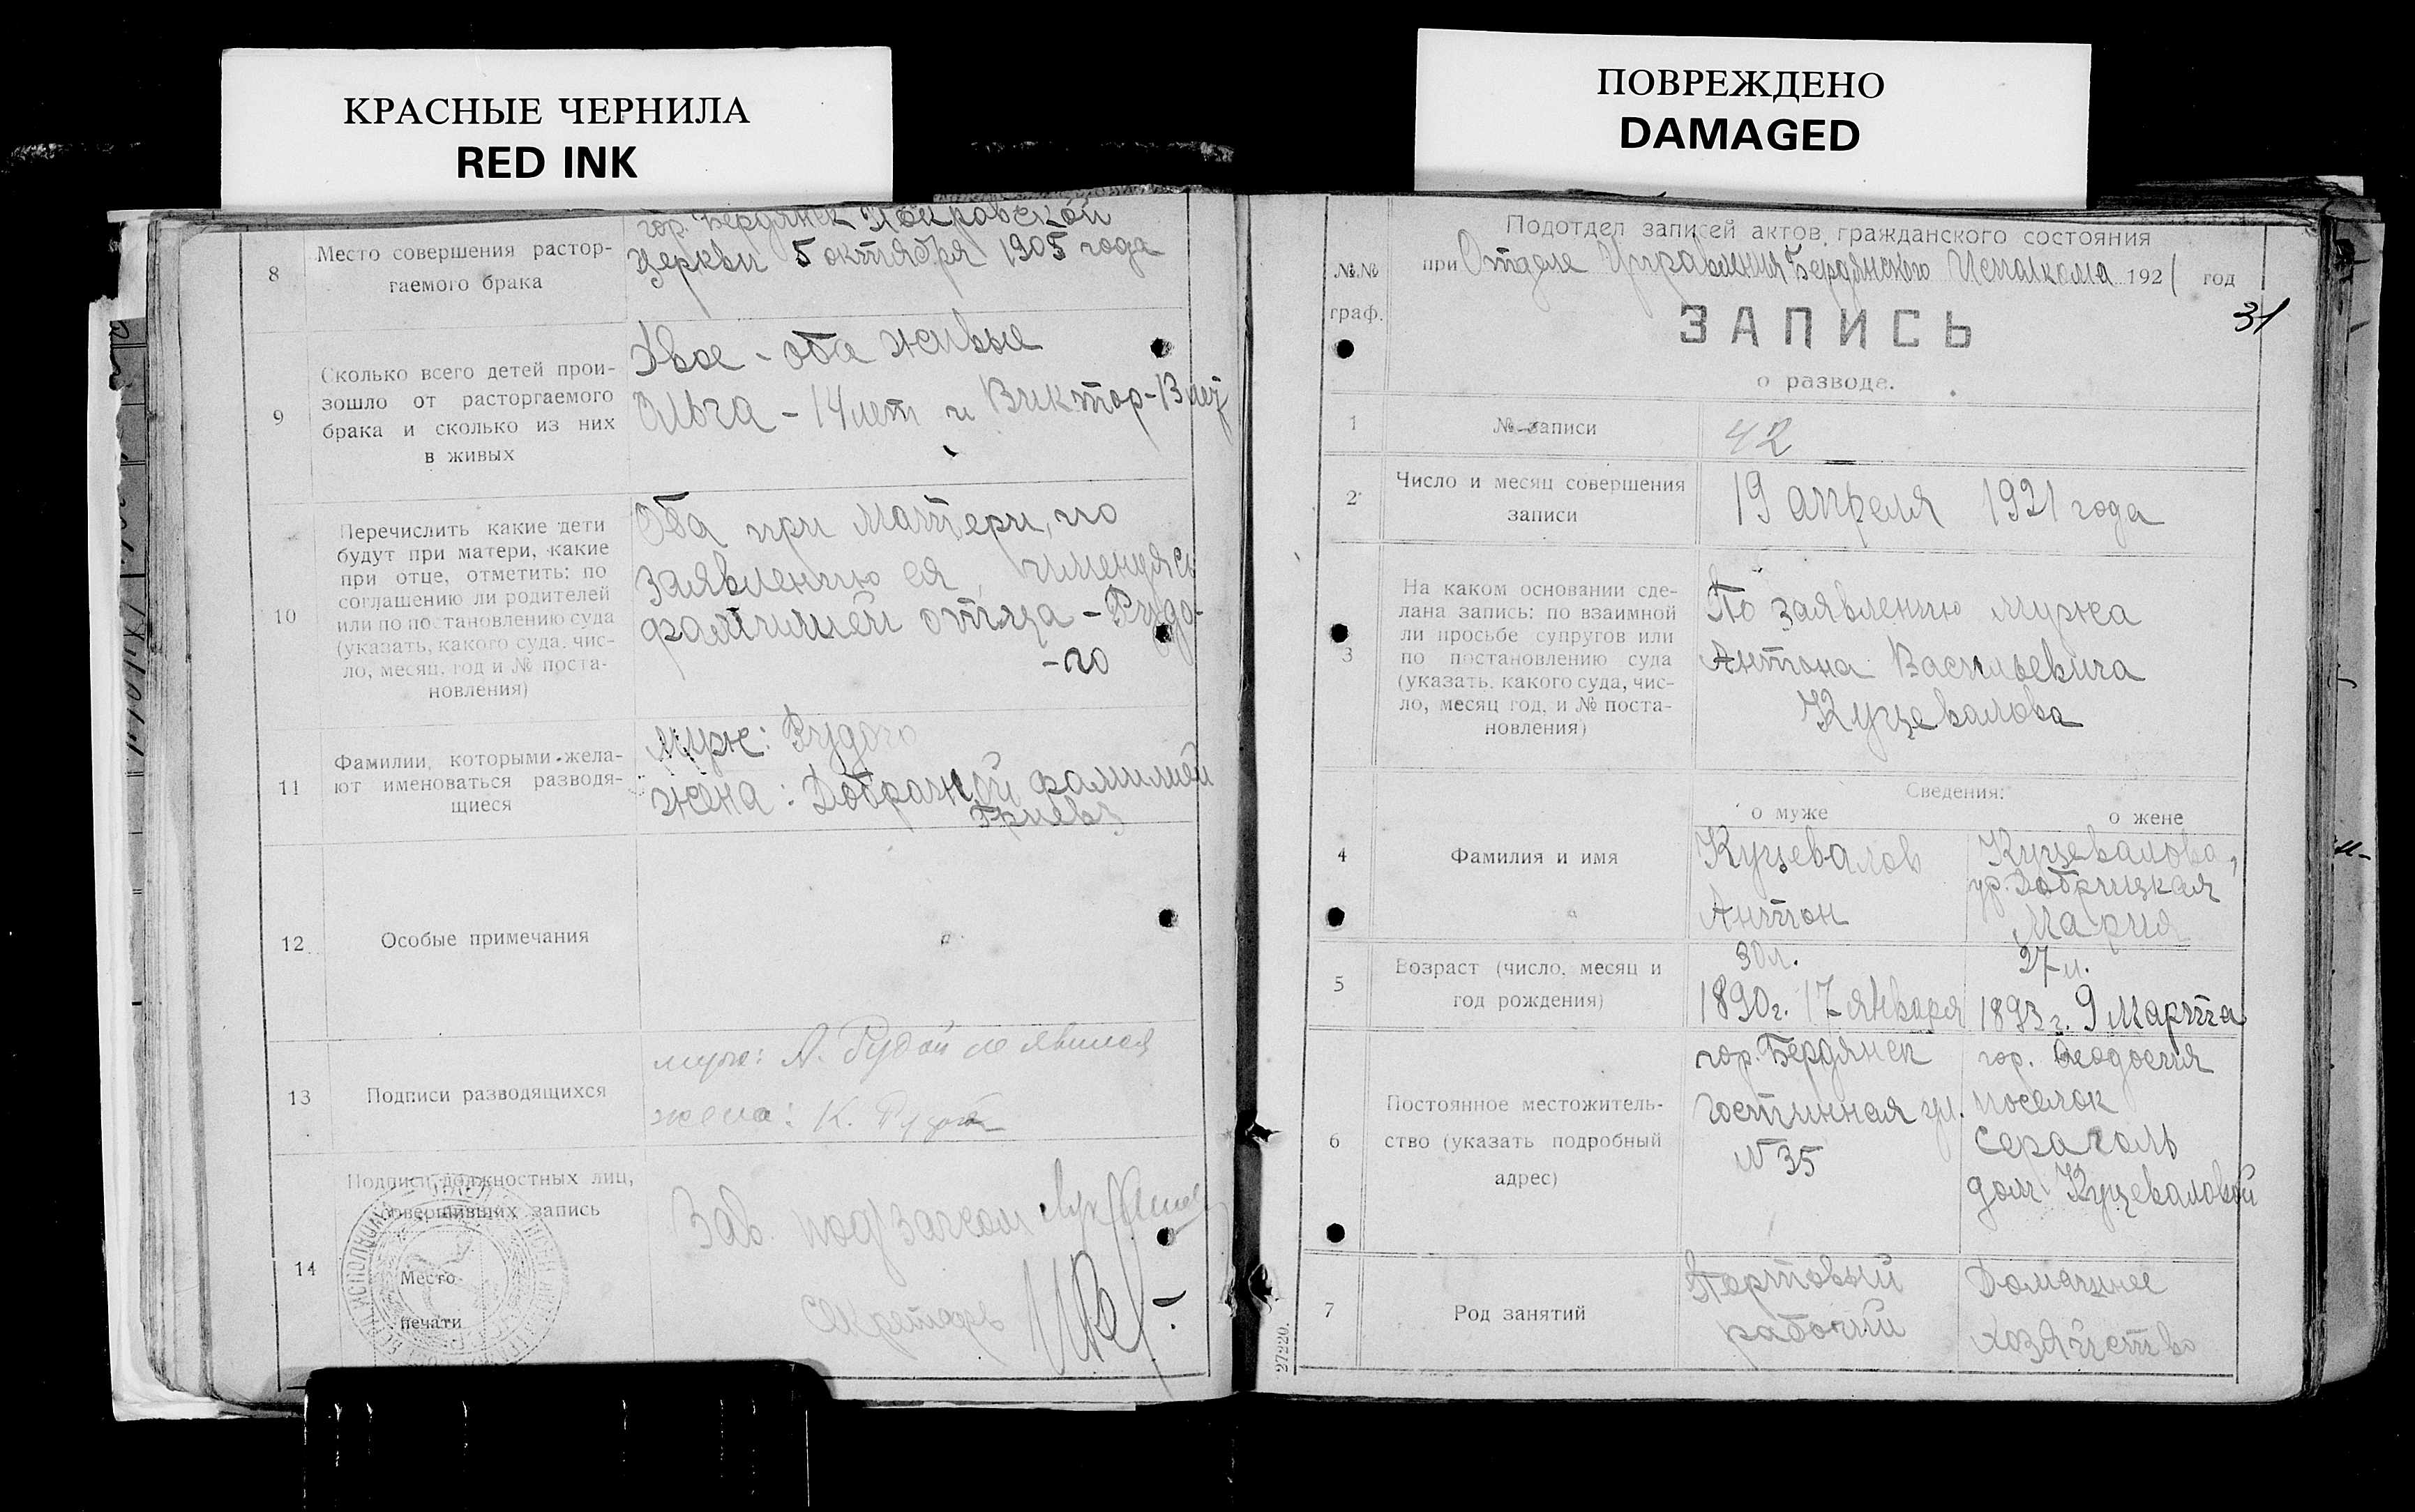 КРАСНЫЕ ЧЕРНИЛА
RED INK
ПОВРЕЖДЕНО
DAMAGED
8
Место совершения растор-
гаемого брака
гор. Бердянск Покровской
церкви 5 октября 1905 года
9
Сколько всего детей прои-
зошло от расторгаемого
брака и сколько из них
в живых
Двое - оба живые
Ольга - 14 лет и Виктор - 13 лет
10
Перечислить какие дети
будут при матери, какие
при отце, отметить: по
соглашению ли родителей
или по постановлению суда
(указать, какого суда, чис-
ло, месяц, год и № поста-
новления)
Оба при матери, по
заявлению ея, именуясь
фамилией отца - Рудо-
-го
11
Фамилии, которыми жела-
ют именоваться разводя-
щиеся
муж: Рудого
жена: Добрачной фамилией
12
Особые примечания
13
Подписи разводящихся
муж: А. Рудой не явился
жена: К. Рудой
14
Подписи должностных лиц,
совершивших запись
Место
печати
Зав. под/загсом
Секретарь
№№
граф.
Подотдел записей актов гражданского состояния
при Отделе Управления Бердянского Исполкома 1921 год
31
ЗАПИСЬ
о разводе.
1
№ записи
42
2
Число и месяц совершения
записи
19 апреля 1921 года
3
На каком основании сде-
лана запись: по взаимной
ли просьбе супругов или
по постановлению суда
(указать, какого суда, чис-
ло, месяц год, и № поста-
новления)
По заявлению мужа
Антона Васильевича
Куцевалова
Сведения:
о муже
о жене
4
Фамилия и имя
Куцевалов
Антон
Куцевалова,
ур. Добрицкая
Мария
5
Возраст (число, месяц и
год рождения)
30 л.
1890 г. 17 января
27 л.
1893 г. 9 марта
6
Постоянное местожитель-
ство (указать подробный
адрес)
гор. Бердянск
Гостинная ул.
№ 35
гор. Феодосия
поселок
Сараголь
дом Куцеваловой
7
Род занятий
Портовый
рабочий
Домашнее
хозяйство
27220.